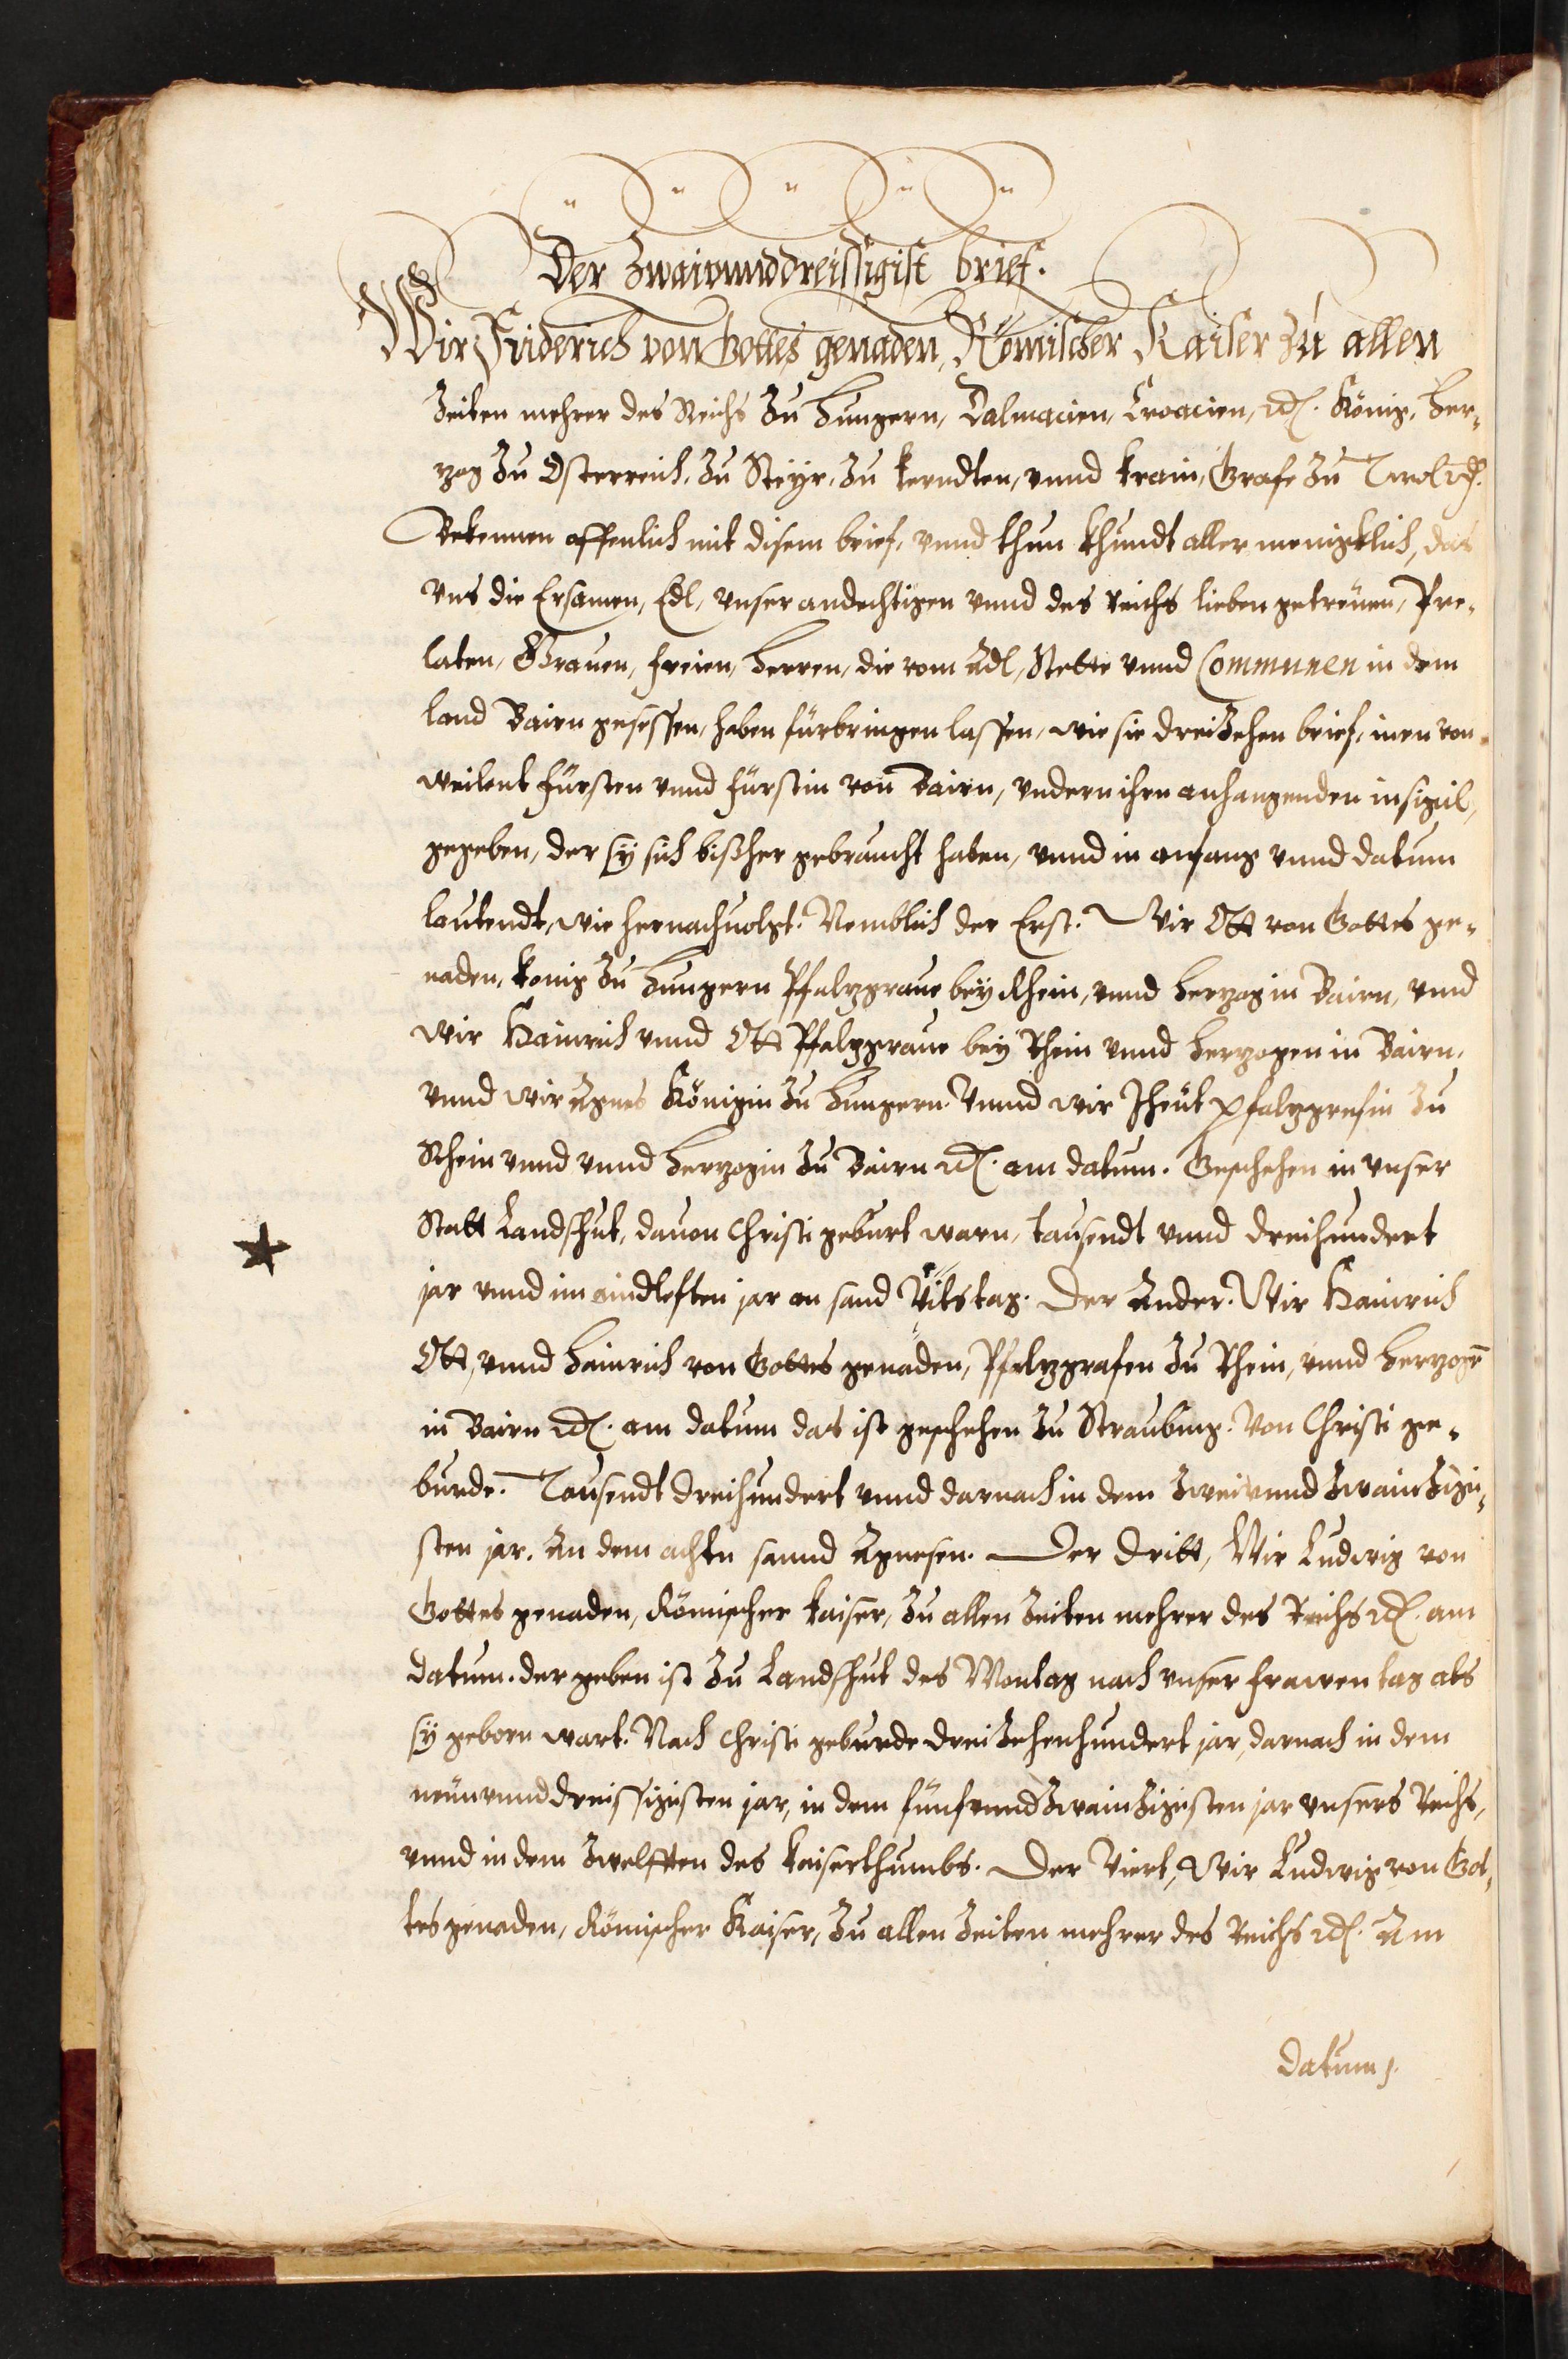 Der Zwaiunnddreissigist brief.
Wir Friderich von Gottes genaden, Römischer Kaiser zu allen
Zeiten mehrer des Reichs Zu Hungern, Dalmacien, Croacien, etc. König, Her¬
zog Zu Österreich, Zu Steyr, Zu kerndten, vnnd krain, Grafe Zu Tirol etc.
Bekennen offenlich mit disem brief, vnnd thun khundt aller menigklich, das
vns die Ersamen, Edl, vnser andechtigen vnnd des reichs lieben getreuen, Pre¬
laten, Grauen, freien, Herren, die vom Adl, Stette vnnd Communen in dem
land Bairn gesessen, haben fürbringen lassen, wie sie dreizehen brief, inen von
weilent fürsten vnnd fürstin von Bairn, vndern ihren anhangenden insigil,
gegeben, der sy sich bißher gebraucht haben, vnnd in anfang vnnd datum
lautendt, wie hernachuolgt. Nemblich der Erst. Wir Ott von Gottes ge¬
naden, konig Zu Hungern Pfalzgraue bey Rhein, vnnd Herzog in Bairn, vnnd
wir Hainrich vnnd Ott Pfalzgraue bey Rhein vnnd Herzogen in Bairn,
vnnd wir Agnes Königin Zu Hungern. Vnnd wir Jheut Pfalzgrefin Zu
Rhein vnnd vnnd Herzogin Zu Bairn etc. am datum. Geschehen in vnser
Statt Landshut, dauon Christi geburt warn, tausendt vnnd dreihundert
jar vnnd im aindleften jar an sand Vits tag. Der Ander. Wir Hainrich
Ott, vnnd Hainrich von Gottes genaden, Pfalzgrafen Zu Rhein, vnnd Herzogē
in Bairn etc. am datum das ist geschehen Zu Straubing. Von Christi ge¬
burde. Tausendt dreihundert vnnd darnach in dem Zweivnnd Zwainzigi¬
sten jar. An dem achtn sannd Agnesen. Der dritt, Wir Ludwig von
Gottes genaden, Römischer kaiser, Zu allen Zeiten mehrer des Reichs etc. am
datum. der geben ist Zu Landshut des Montag nach vnser frawen tag als
sy geborn wart. Nach Christi geburde dreizehenhundert jar, darnach in dem
neunvnnddreissigisten jar, in dem fünfvnndZwainzigisten jar vnsers Reichs,
vnnd in dem Zwelfften des kaiserthumbs. Der Viert, Wir Ludwig von Got¬
tes genaden, Römischer Kaiser, Zu allen Zeiten mehrer des Reichs etc. Am
datum